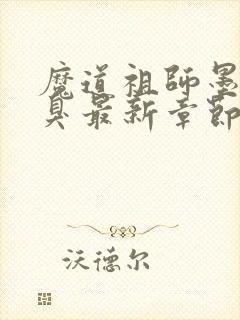 魔道祖師墨
臭最新章節
沃德尔